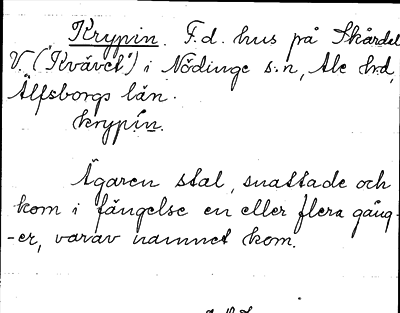 Krypin. F.d. hus på Skårdal
V. ('Kvävet') i Nödinge s:n, Ale hd,
Älfsborgs län.
krypín.
Ägaren stal, snattade och
kom i fängelse en eller flera gång-
-er, varav namnet kom.